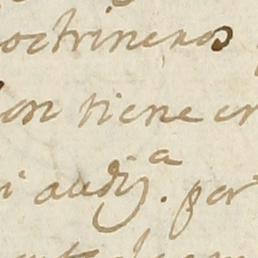 octrineros
on tiene en
i audiª. por